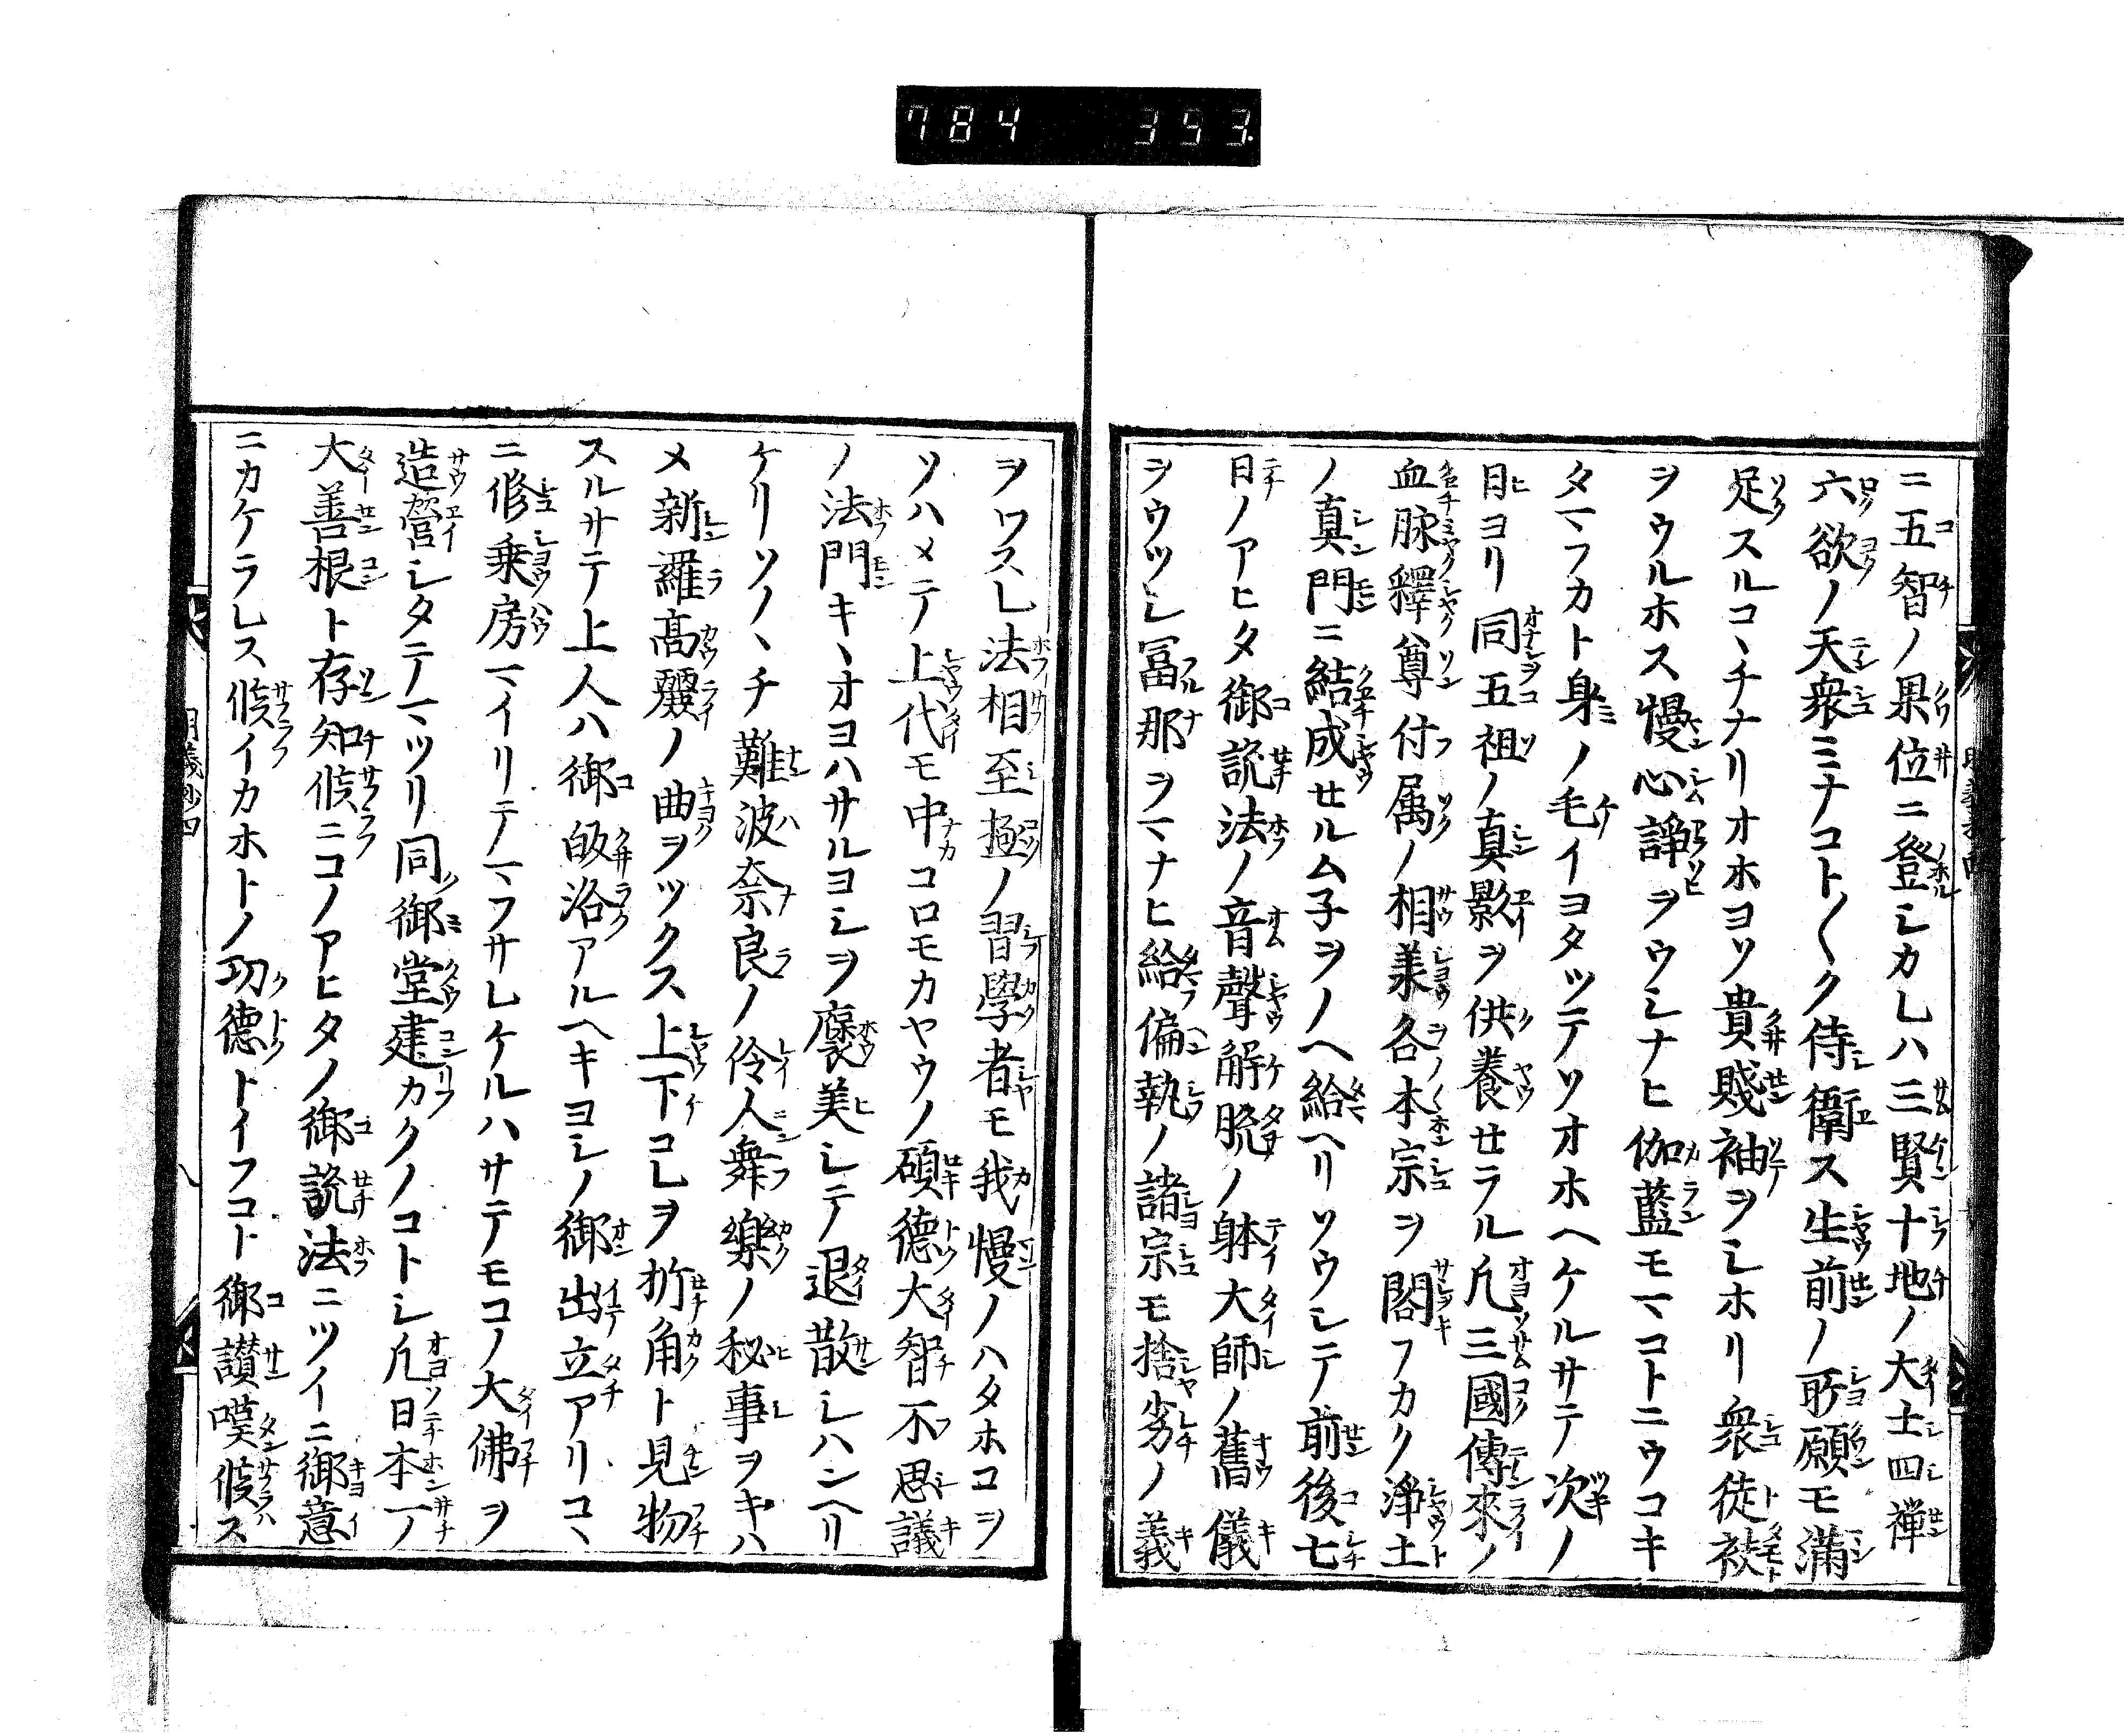 784 353.
ニ五智ノ果位ニ登シカレハ三賢十地ノ大士四禅
六欲ノ天衆ミナコト〱ク侍衛ス生前ノ所願モ満
足スルコヽチナリオホヨソ貴賤袖ヲシホリ衆徒袂
ヲウルホス慢心諍ヲウシナヒ伽藍モマコトニウコキ
タマフカト身ノ毛イヨタツテソオホヘケルサテ次ノ
日ヨリ同五祖ノ真影ヲ供養セラル凡三國傳來ノ
血脉釋尊付属ノ相兼各本宗ヲ閣フカク浄土
ノ真門ニ結成セルム子ヲノヘ給ヘリソウシテ前後七
日ノアヒタ御説法ノ音聲解脱ノ躰大師ノ舊儀
ヲウツシ冨那ヲマナヒ給偏執ノ諸宗モ捨劣ノ義
ヲワスレ法相至極ノ習學者モ我慢ノハタホコヲ
ソハメテ上代モ中コロモカヤウノ碩德大智不思議
ノ法門キヽオヨハサルヨシヲ褒美シテ退散シハンヘリ
ケリソノヽチ難波奈良ノ伶人舞樂ノ秘事ヲキハ
メ新羅高麗ノ曲ヲツクス上下コレヲ折角ト見物
スルサテ上人ハ御皈洛アルヘキヨシノ御出立アリコヽ
ニ修乗房マイリテノマフサレケルハサテモコノ大佛ヲ
造營シタテマツリ同御堂建カクノコトシ凡日本一ノ
大善根ト存知候ニコノアヒタノ御説法ニツイニ御意
ニカケラレス候イカホトノ功德トイフコト御讃嘆候ス
明義抄四